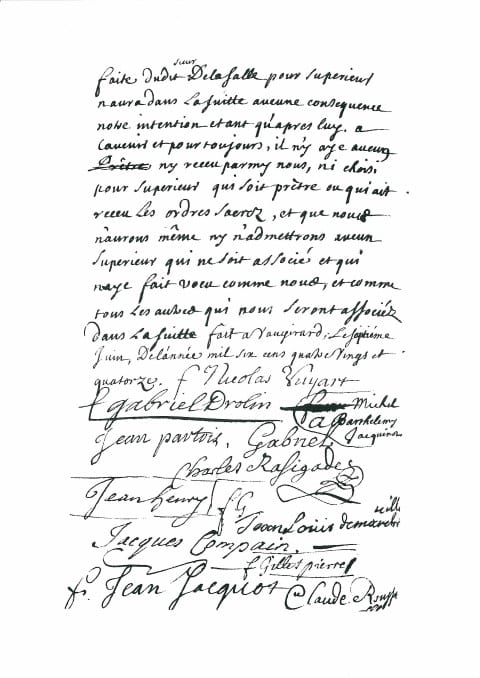 sieur
faite dudit Delasalle pour superieur
n'aura dans Lasuitte aucune consequence
notre intention etant qu'apres luy. a
L'avenir et pour toujours, il n'y aye aucun
Prêtre ny receu parmy nous, ni choisi
pour superieur qui soit prêtre ou qui ait
receu Les ordres sacrez, et que nous
n'aurons même ny n'admettrons aucun
superieur qui ne soit associé et qui
naye fait voeu comme nous, et comme
tous Les autres qui nous seront associéz
dans La suitte fait a Vaugirard, Le septième
Juin, De L'année mil six cens quatre vingts et
quatorze. f Nicolas Vuyart
f gabriel Drolin Michel
Barthelemy
Jean partois, Gabriel Jacquinot
Charles Rasigade
Jean henry f G
Jean Louis demarcheville
Jacques Compain.
f Gilles pierre
f. Jean Jacquot Claude